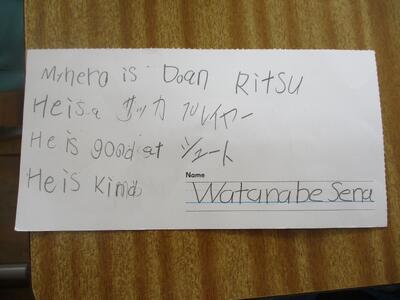 My hero is Doan RITSU
He is a サッカ プレイヤー
He is good at シュート
He is Kind
Name
Watanabe Sena